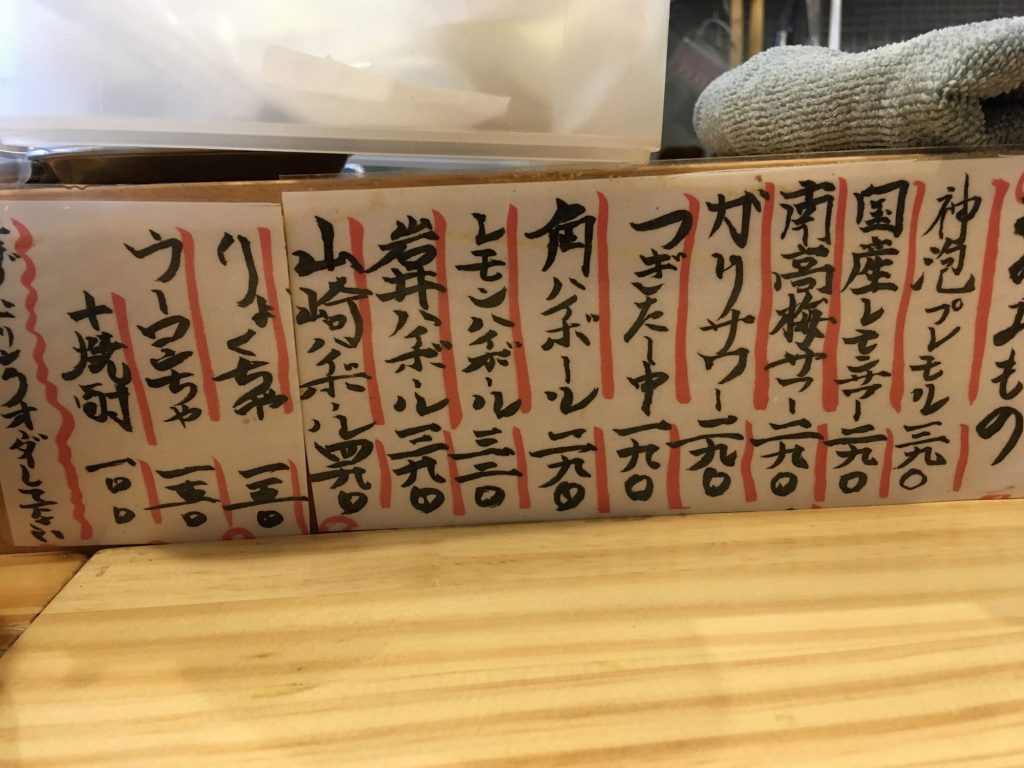 のみもの
神泡プレモル 三九〇
国産レモンサワー 二九〇
南高梅サワー 二九〇
ガリサワー 二九〇
つぎたし中 一九〇
角ハイボール 二九〇
レモンハイボール 三二〇
岩井ハイボール 三九〇
山崎ハイボール 四九〇
りょくちゃ 一五〇
ウーロンちゃ 一五〇
十焼酎 一〇〇
ドリンクオーダーして下さい